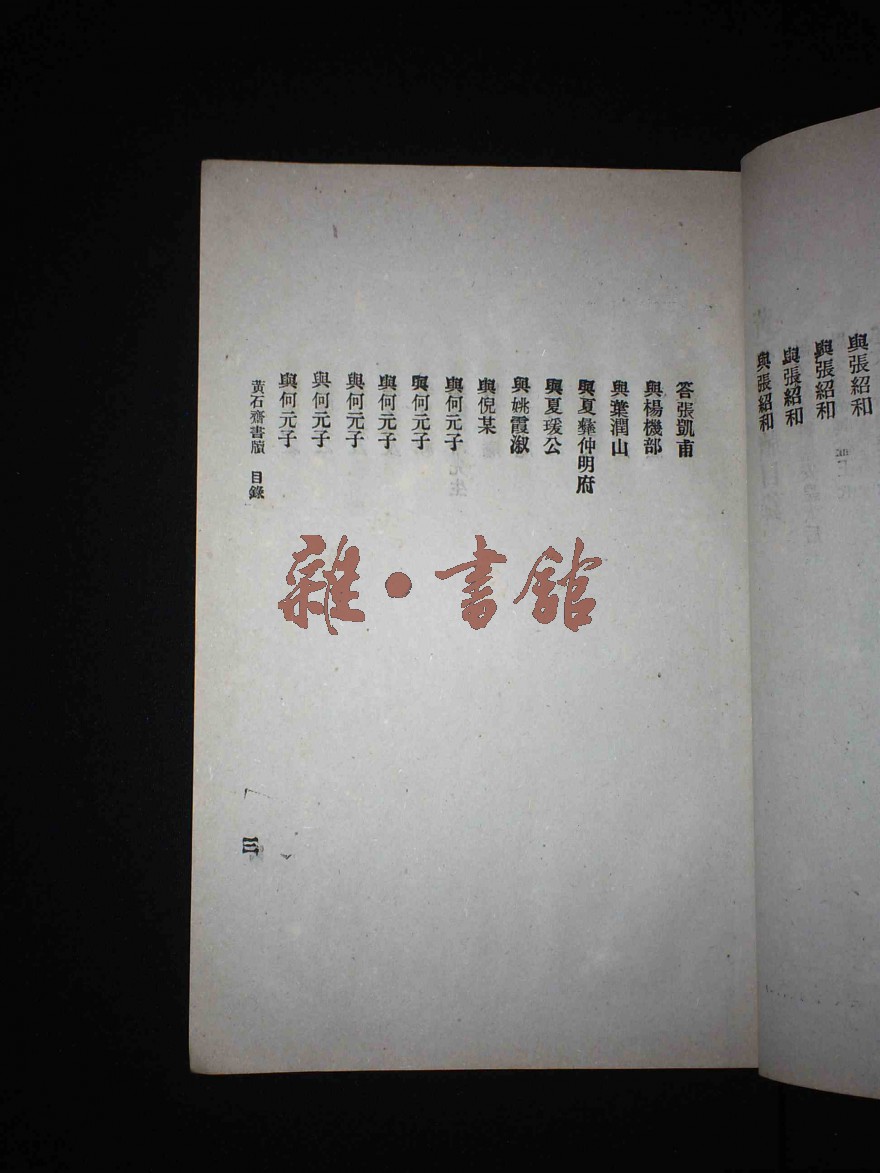 與張紹和
與張紹和
與張紹和
與張紹和
答張凱甫
與楊機部
與葉潤山
與夏彝仲明府
與夏瑗公
與姚霞溆
與倪某
與何元子
與何元子
與何元子
與何元子
與何元子
與何元子
黃石齋書牘 目錄
三
雜·書館